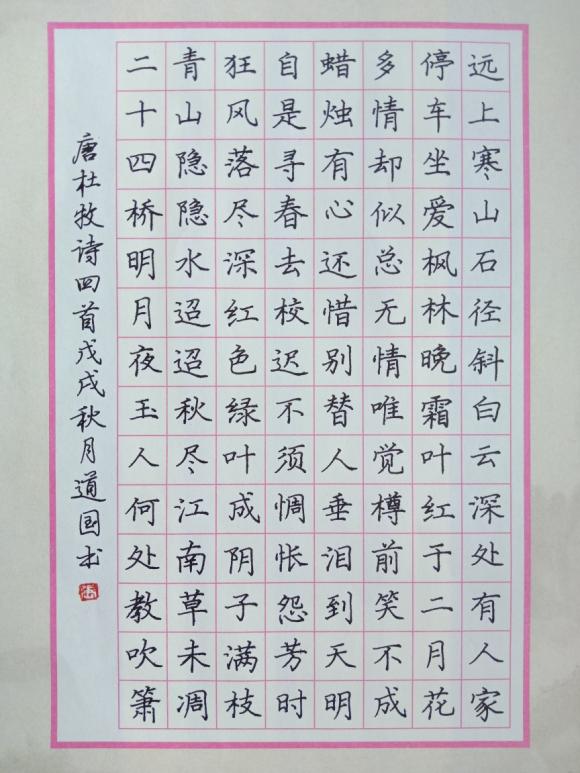 远上寒山石径斜白云深处有人家
停车坐爱枫林晚霜叶红于二月花
多情却似总无情唯觉樽前笑不成
蜡烛有心还惜别替人垂泪到天明
自是寻春去校迟不须惆怅怨芳时
狂风落尽深红色绿叶成阴子满枝
青山隐隐水迢迢秋尽江南草未凋
二十四桥明月夜玉人何处教吹箫
唐杜牧诗四首戊戌秋月道国书